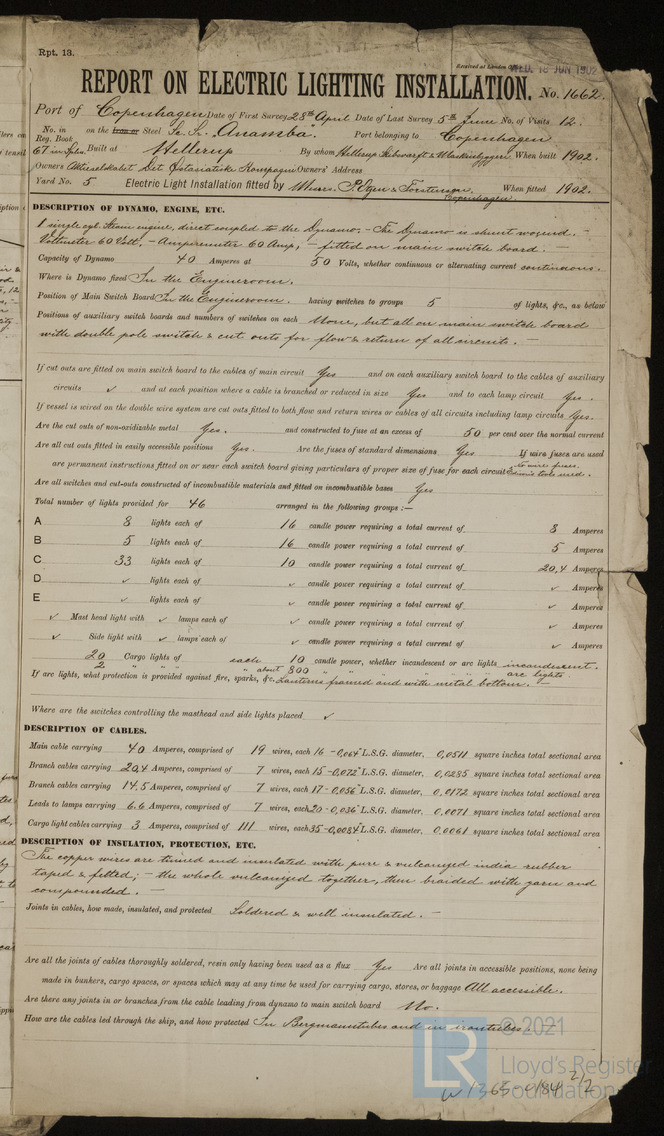 Rpt. 13.
Received at London Office WED. 18 JUN 1902
REPORT ON ELECTRIC LIGHTING INSTALLATION. No. 1662.
Port of Copenhagen Date of First Survey 28th April Date of Last Survey 5th June No. of Visits 12.
No. in Reg. Book on the Iron or Steel Sc. Sr. Anamba. Port belonging to Copenhagen
67 in Built at Hellerup By whom Hellerup Skibsværft & Maskinbyggeri When built 1902.
Owners Aktieselskabet Det Østasiatiske Kompagni Owners' Address
Yard No. 5 Electric Light Installation fitted by Messrs. When fitted 1902.
Copenhagen.
DESCRIPTION OF DYNAMO, ENGINE, ETC.
1 single cyl. steam engine, direct coupled to the Dynamo. – The Dynamo is shunt wound. –
Voltmeter 60 Volt, – Amperemeter 60 Amp, – fitted on main switch board. –
Capacity of Dynamo 40 Amperes at 50 Volts, whether continuous or alternating current continuous.
Where is Dynamo fixed In the Engineroom.
Position of Main Switch Board In the Engineroom. having switches to groups 5 of lights, &c., as below
Positions of auxiliary switch boards and numbers of switches on each None, but all on main switch board
with double pole switch & cut outs for flow & return of all circuits. –
If cut outs are fitted on main switch board to the cables of main circuit Yes and on each auxiliary switch board to the cables of auxiliary
circuits ✓ and at each position where a cable is branched or reduced in size Yes and to each lamp circuit Yes.
If vessel is wired on the double wire system are cut outs fitted to both flow and return wires or cables of all circuits including lamp circuits Yes.
Are the cut outs of non-oxidizable metal Yes. and constructed to fuse at an excess of 50 per cent over the normal current
Are all cut outs fitted in easily accessible positions Yes. Are the fuses of standard dimensions Yes If wire fuses are used
are permanent instructions fitted on or near each switch board giving particulars of proper size of fuse for each circuit no wire fuses used.
Are all switches and cut-outs constructed of incombustible materials and fitted on incombustible bases Yes
Total number of lights provided for 46 arranged in the following groups :—
A 8 lights each of 16 candle power requiring a total current of 8 Amperes
B 5 lights each of 16 candle power requiring a total current of 5 Amperes
C 33 lights each of 10 candle power requiring a total current of 20,4 Amperes
D ✓ lights each of ✓ candle power requiring a total current of ✓ Amperes
E ✓ lights each of ✓ candle power requiring a total current of ✓ Amperes
✓ Mast head light with ✓ lamps each of ✓ candle power requiring a total current of ✓ Amperes
✓ Side light with ✓ lamps each of ✓ candle power requiring a total current of ✓ Amperes
20 Cargo lights of each 10 candle power, whether incandescent or arc lights incandescent.
2 " " " " about 800 " " " " " arc lights.
If arc lights, what protection is provided against fire, sparks, &c. Lanterns framed and with metal bottom. –
Where are the switches controlling the masthead and side lights placed ✓
DESCRIPTION OF CABLES.
Main cable carrying 40 Amperes, comprised of 19 wires, each 16 – 0,064" L.S.G. diameter, 0,0511 square inches total sectional area
Branch cables carrying 20,4 Amperes, comprised of 7 wires, each 15 – 0,072" L.S.G. diameter, 0,0285 square inches total sectional area
Branch cables carrying 14.5 Amperes, comprised of 7 wires, each 17 – 0,056" L.S.G. diameter, 0,0172 square inches total sectional area
Leads to lamps carrying 6.6 Amperes, comprised of 7 wires, each 20 – 0,036" L.S.G. diameter, 0,0071 square inches total sectional area
Cargo light cables carrying 3 Amperes, comprised of 111 wires, each 35 – 0,0084" L.S.G. diameter, 0,0061 square inches total sectional area
DESCRIPTION OF INSULATION, PROTECTION, ETC.
The copper wires are tinned and insulated with pure & vulcanized india rubber
taped & felted; – the whole vulcanized together, then braided with yarn and
compounded. –
Joints in cables, how made, insulated, and protected Soldered & well insulated. –
Are all the joints of cables thoroughly soldered, resin only having been used as a flux Yes Are all joints in accessible positions, none being
made in bunkers, cargo spaces, or spaces which may at any time be used for carrying cargo, stores, or baggage All accessible.
Are there any joints in or branches from the cable leading from dynamo to main switch board No.
How are the cables led through the ship, and how protected In Bergmannstubes and in irontubes. –
© 2021
LR
Lloyd's Register
Foundation
W1365-0184 2/2